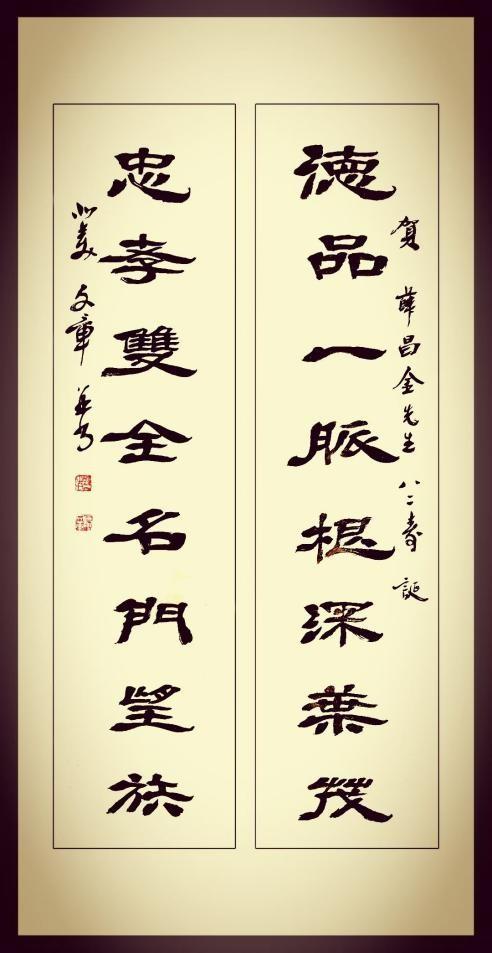 賀 薛昌金先生 八二壽誕
德品一脈根深葉茂
忠孝雙全名門望族
文章